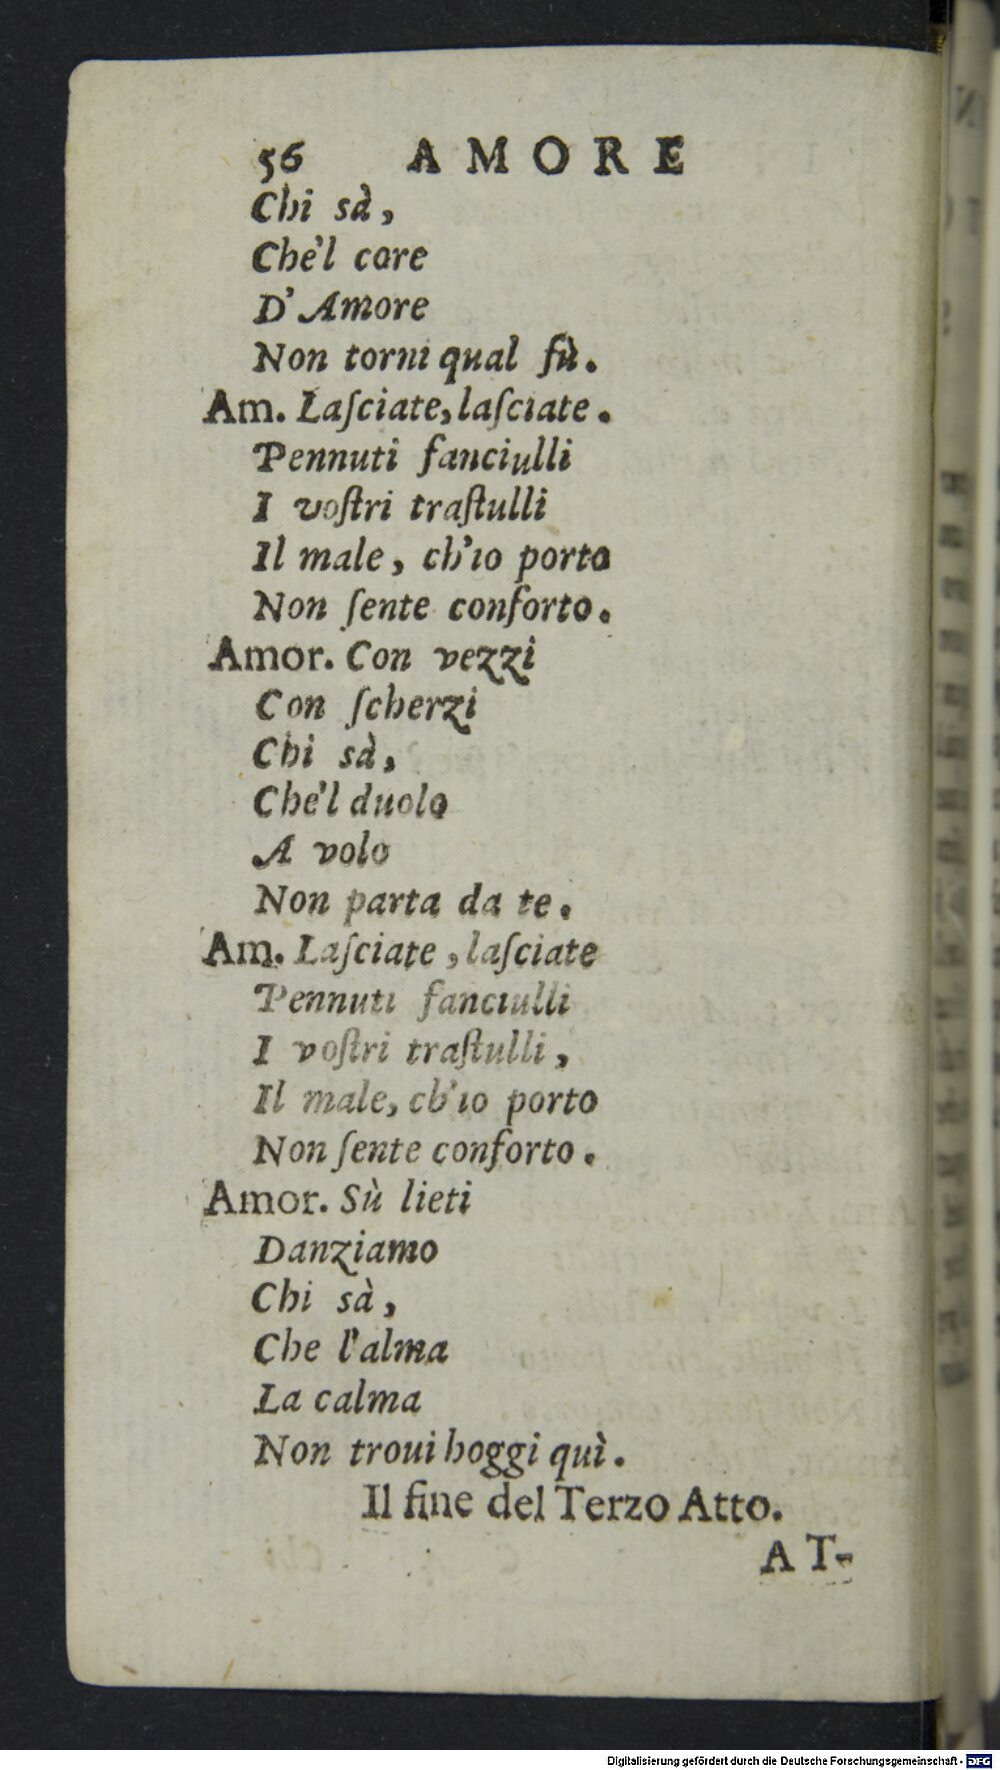 56 AMORE
Chi sà,
Che'l core
D'Amore
Non torni qual fù.
Am. Laſciate, laſciate.
Pennuti fanciulli
I voſtri traſtulli
Il male, ch'io porto
Non ſente conforto.
Amor. Con vezzi
Con ſcherzi
Chi sà,
Che'l duolo
A volo
Non parta da te.
Am. Laſciate, laſciate
Pennuti fanciulli
I voſtri traſtulli,
Il male, ch'io porto
Non ſente conforto.
Amor. Sù lieti
Danziamo
Chi sà,
Che l'alma
La calma
Non troui hoggi quì.
Il fine del Terzo Atto.
AT-
Digitalisierung gefördert durch die Deutsche Forschungsgemeinschaft - DFG